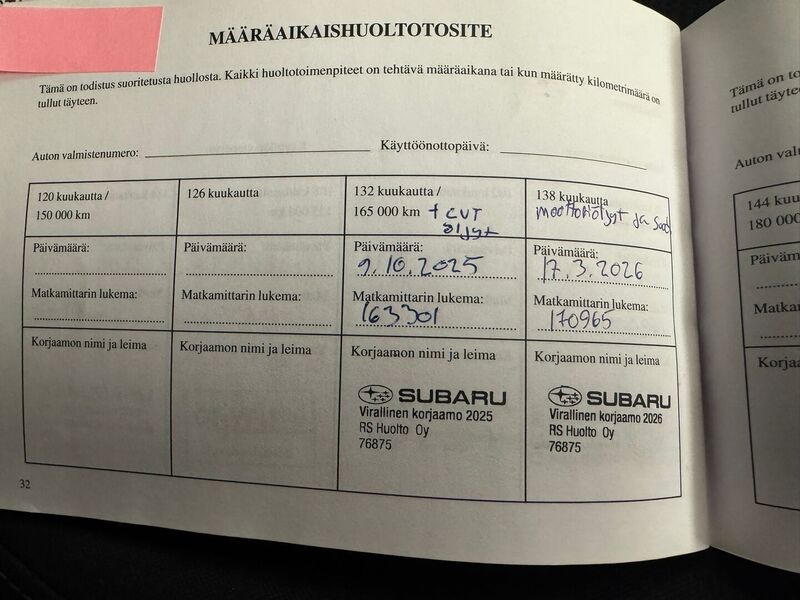 MÄÄRÄAIKAISHUOLTOTOSITE
Tämä on todistus suoritetusta huollosta. Kaikki huoltotoimenpiteet on tehtävä määräaikana tai kun määrätty kilometrimäärä on
tullut täyteen.
Auton valmistenumero:
Käyttöönottopäivä:
120 kuukautta /
150 000 km
126 kuukautta
132 kuukautta /
165 000 km + CVT
öljyt
138 kuukautta
moottoriöljyt ja
Päivämäärä:
Päivämäärä:
Päivämäärä:
9.10.2025
Päivämäärä:
17.3.2026
Matkamittarin lukema:
Matkamittarin lukema:
Matkamittarin lukema:
163301
Matkamittarin lukema:
170965
Korjaamon nimi ja leima
Korjaamon nimi ja leima
Korjaamon nimi ja leima
SUBARU
Virallinen korjaamo 2025
RS Huolto Oy
76875
Korjaamon nimi ja leima
SUBARU
Virallinen korjaamo 2026
RS Huolto Oy
76875
32
Tämä on
tullut
Auton
144
180 000